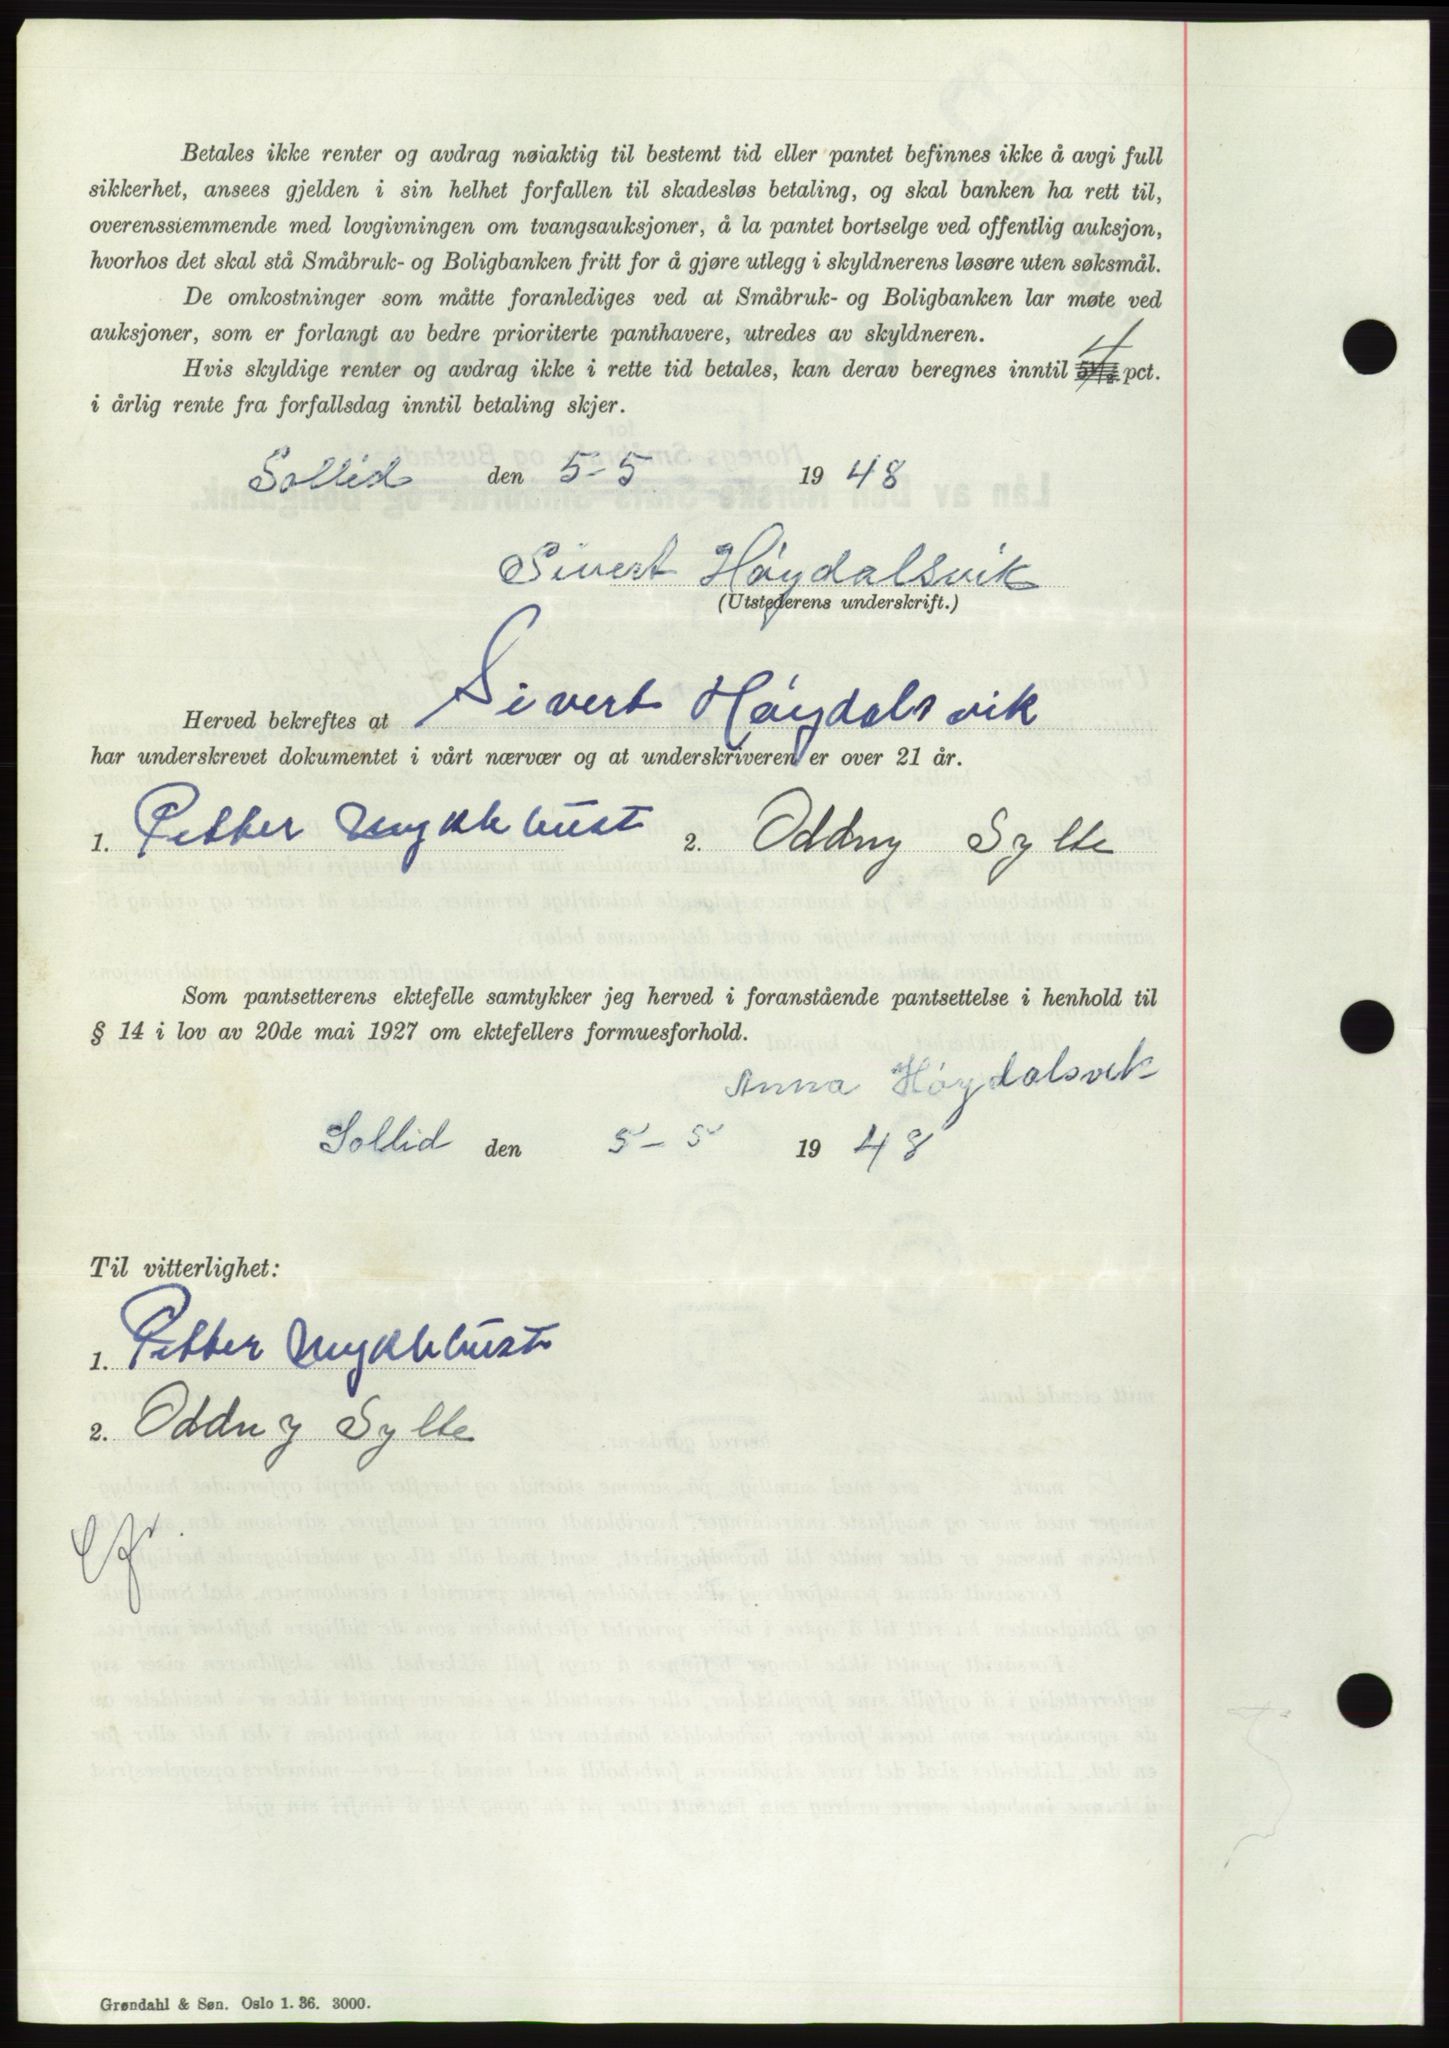 Betales ikke renter og avdrag nøiaktig til bestemt tid eller pantet befinnes ikke å avgi full
sikkerhet, ansees gjelden i sin helhet forfallen til skadesløs betaling, og skal banken ha rett til,
overenssiemmende med lovgivningen om tvangsauksjoner, å la pantet bortselge ved offentlig auksjon,
hvorhos det skal stå Småbruk- og Boligbanken fritt for å gjøre utlegg i skyldnerens løsøre uten søksmål.
De omkostninger som måtte foranlediges ved at Småbruk- og Boligbanken lar møte ved
auksjoner, som er forlangt av bedre prioriterte panthavere, utredes av skyldneren.
Hvis skyldige renter og avdrag ikke i rette tid betales, kan derav beregnes inntil 4 pct.
i årlig rente fra forfallsdag inntil betaling skjer.
Sollid den 5-5 1948
Sivert Høydalsvik
(Utstederens underskrift.)
Herved bekreftes at Sivert Høydalsvik
har underskrevet dokumentet i vårt nærvær og at underskriveren er over 21 år.
1. Petter Myklebust 2. Oddny Sylte
Som pantsetterens ektefelle samtykker jeg herved i foranstående pantsettelse i henhold til
§ 14 i lov av 20de mai 1927 om ektefellers formuesforhold.
Anna Høydalsvik
Sollid den 5-5 1948
Til vitterlighet:
1. Petter Myklebust
2. Oddny Sylte
Grøndahl & Søn. Oslo 1. 36. 3000.